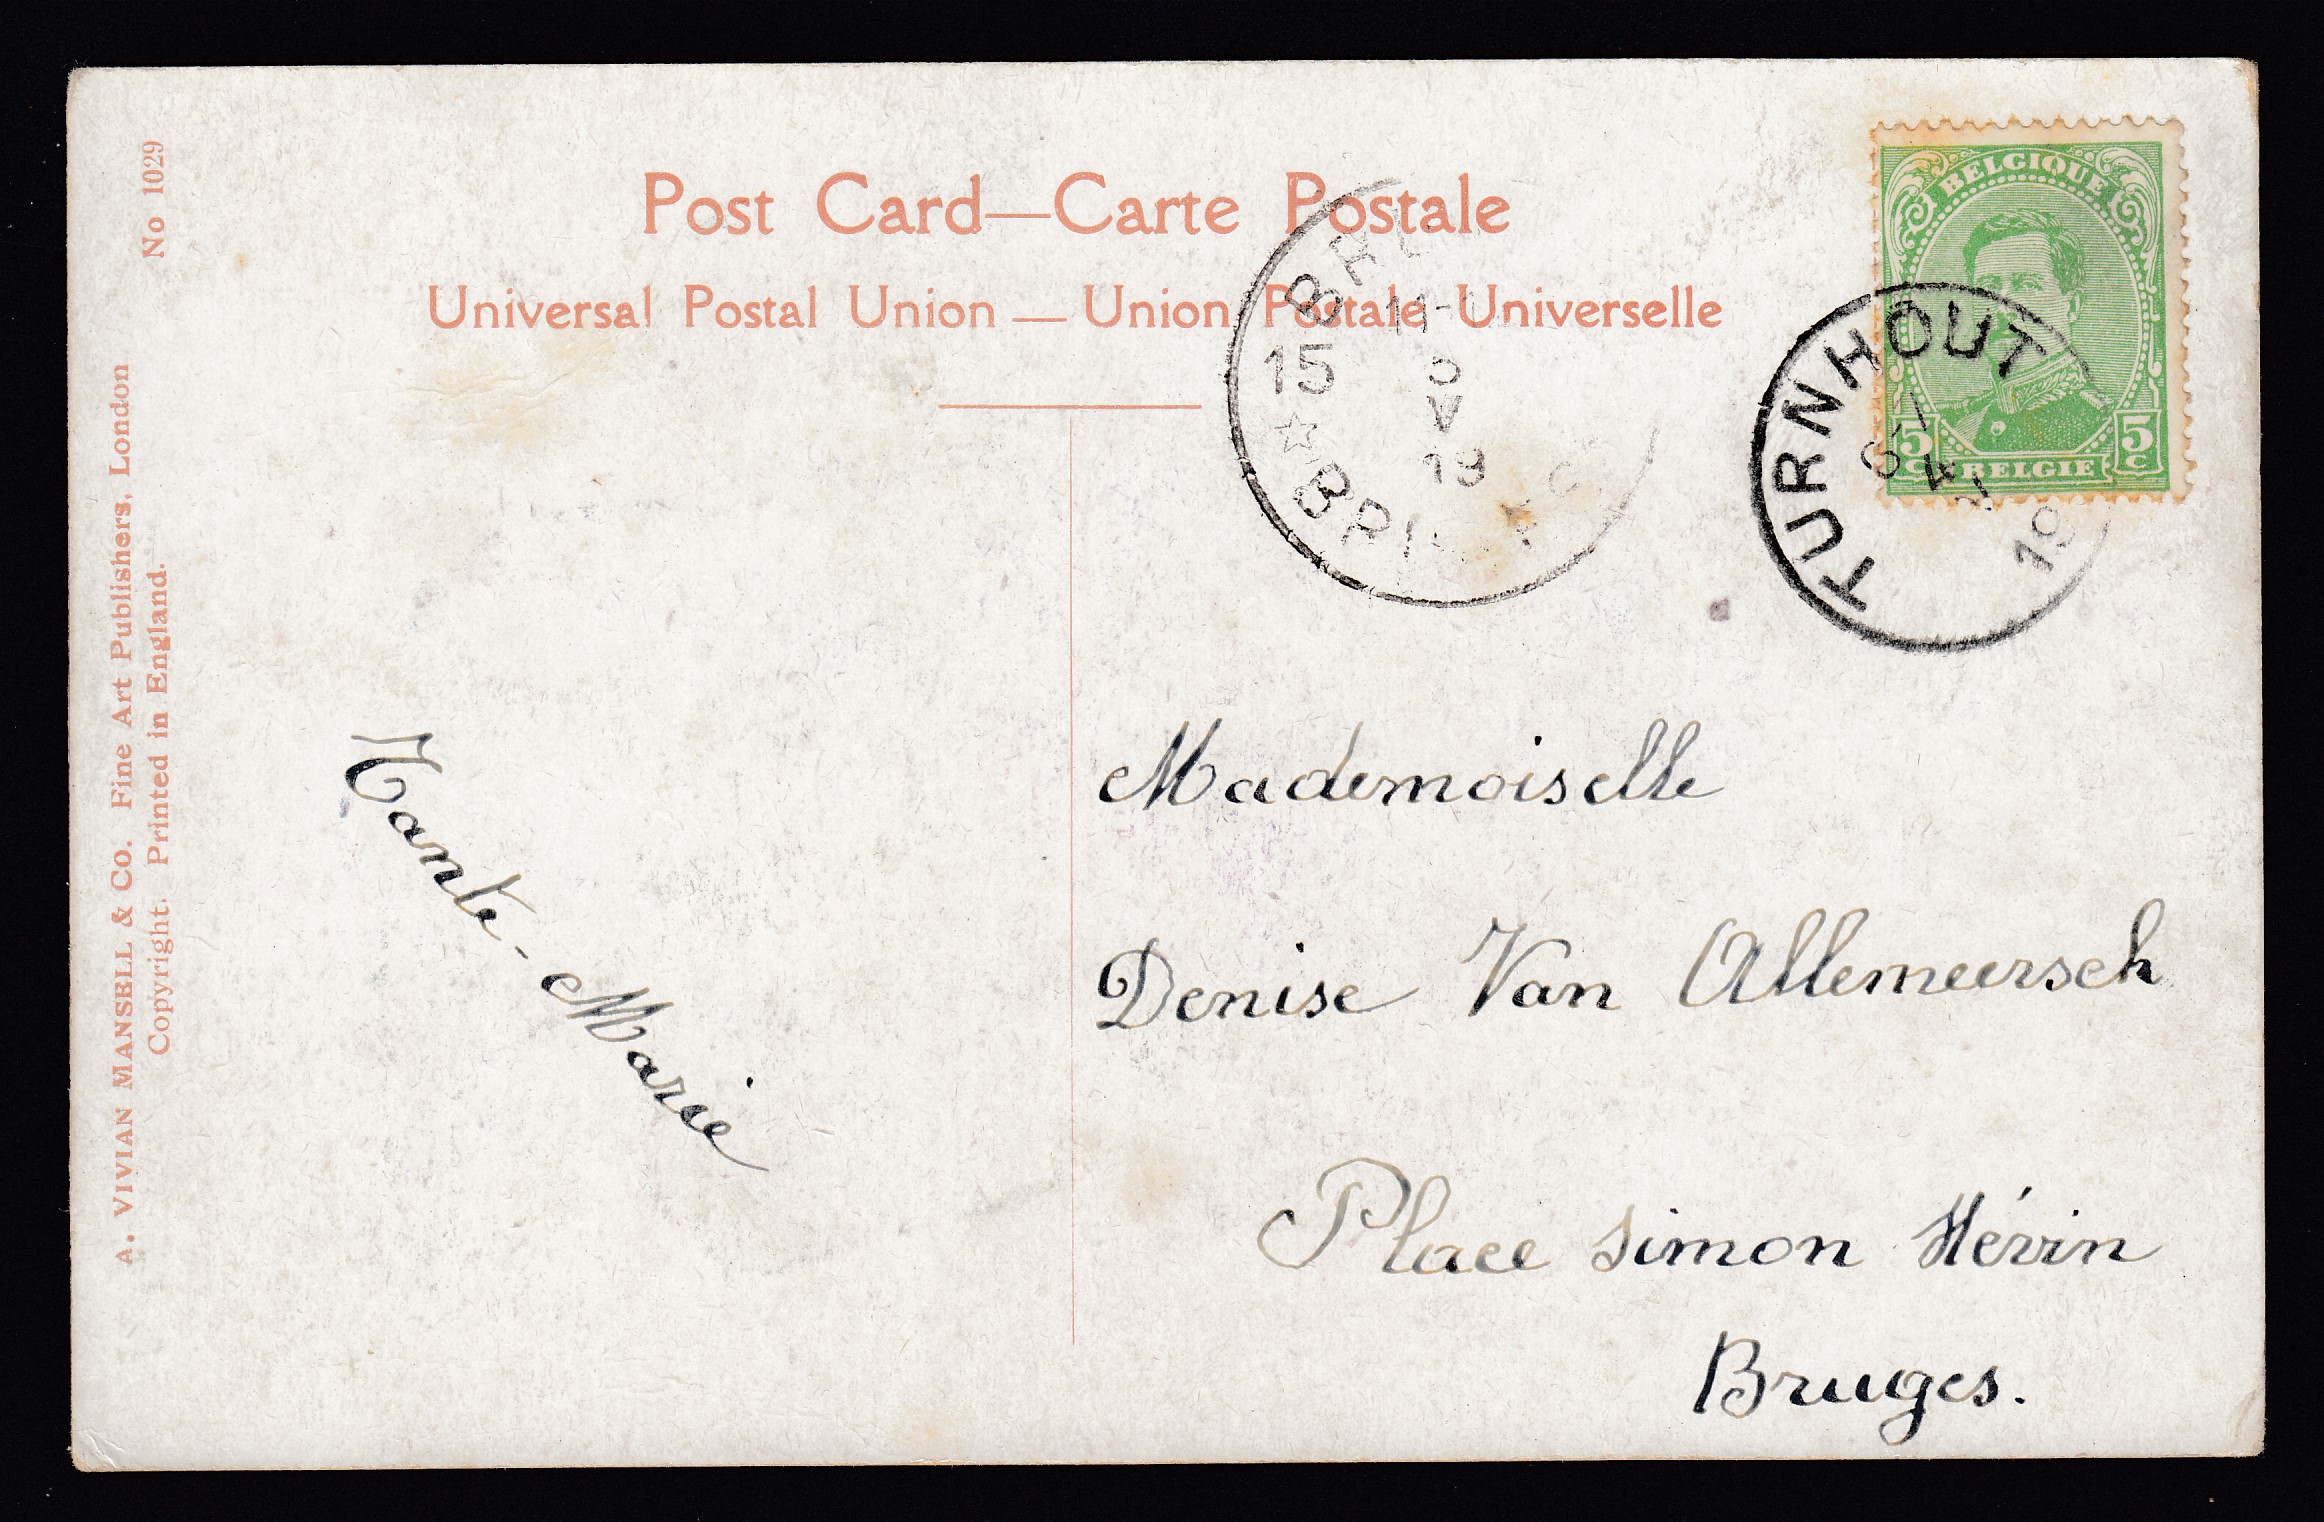 Post Card—Carte Postale
Universal Postal Union — Union Postale Universelle
No 1029
A. VIVIAN MANSELL & CO. Fine Art Publishers, London
Copyright. Printed in England.
BELGIQUE
5c BELGIE 5c
TURNHOUT
19
15
11-
V
19
Tante-Marie
Mademoiselle
Denise Van Allemeersch
Place Simon Stévin
Bruges.